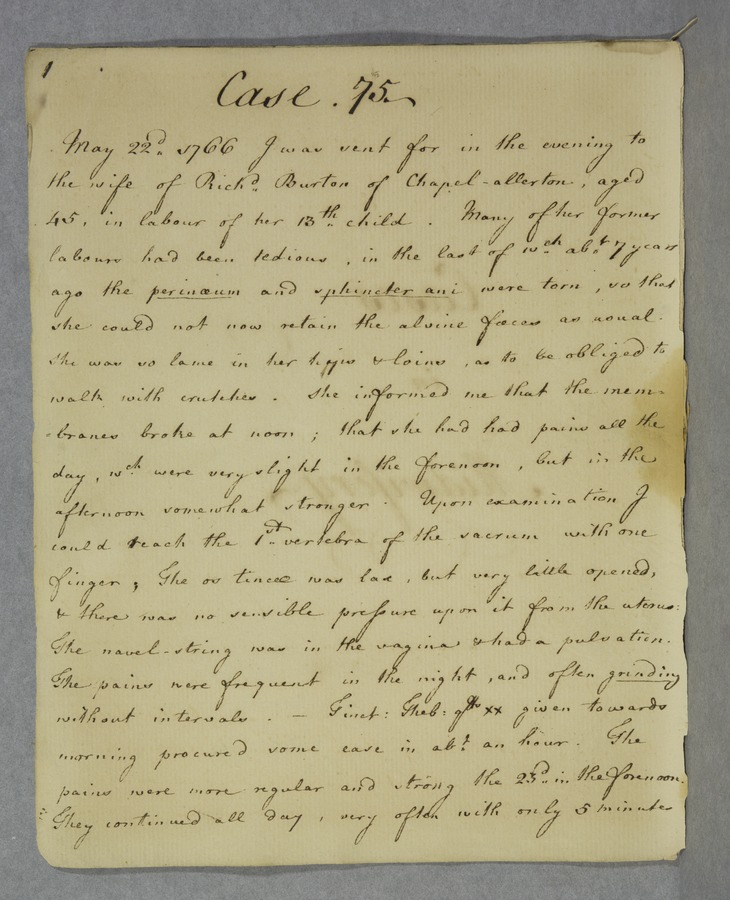 1
Case. 75.
May 22d. 1766 I was sent for in the evening to
the wife of Richd. Burton of Chapel-allerton, aged
45, in labour of her 13th. child. Many of her former
labours had been tedious, in the last of wch. abt. 7 years
ago the perinæum and sphincter ani were torn, so that
she could not now retain the alvine fæces as usual.
She was so lame in her hipps & loins, as to be obliged to
walk with crutches. She informed me that the mem-
-branes broke at noon; that she had had pains all the
day, wch. were very slight in the forenoon, but in the
afternoon somewhat stronger. Upon examination I
could reach the 1st. vertebra of the sacrum with one
finger; The os tincæ was lax, but very little opened,
& there was no sensible pressure upon it from the uterus:
The navel-string was in the vagina & had a pulsation.
The pains were frequent in the night, and often grinding
without intervals. — Tinct: Theb: gtts xx given towards
morning procured some ease in abt. an hour. The
pains were more regular and strong the 23d. in the forenoon.
They continued all day, very often with only 5 minutes